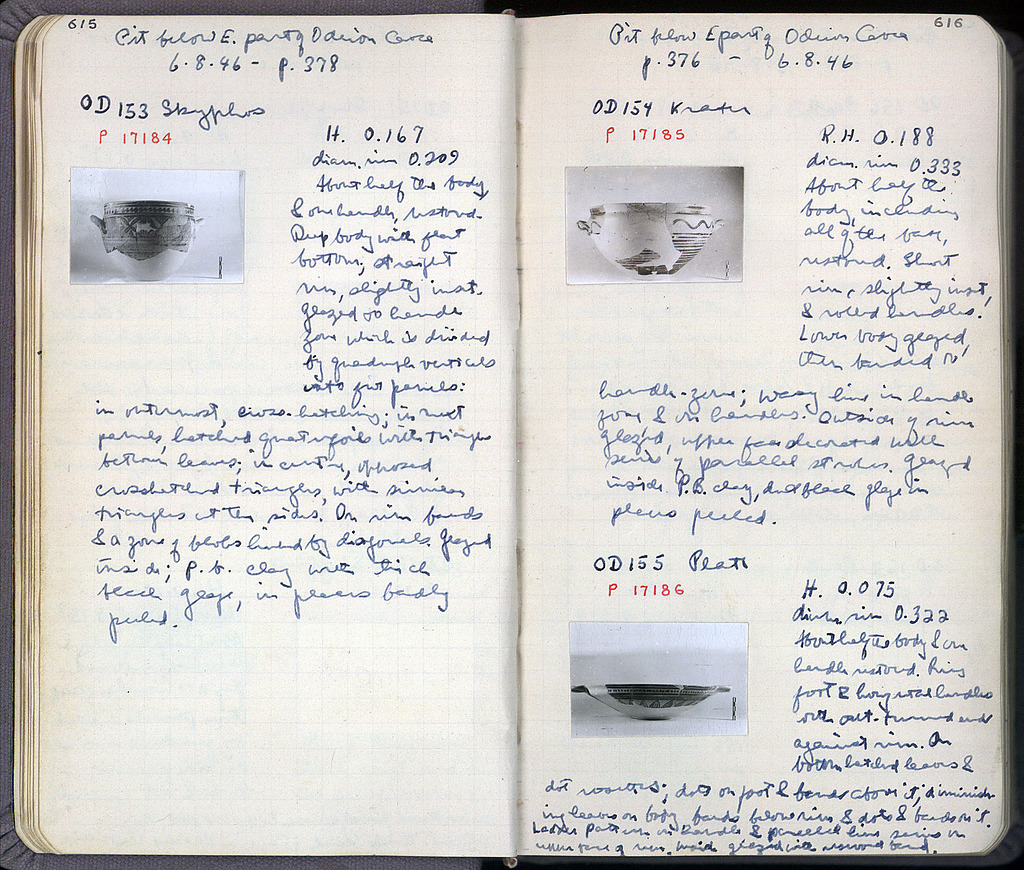 615
Pit below E. part of Odeion Cavea
6.8.46 - p. 378
OD 153 Skyphos
P 17184
H. 0.167
diam. rim 0.209
About half the body,
& one handle, restored.
Deep body with flat
bottom; straight
rim, slightly inset.
Glazed to handle
zone which is divided
by quadruple verticals
into five panels:
in outermost, cross-hatching; in next
panels, hatched quatrefoils with triangles
between leaves; in centre, opposed
crosshatched triangles, with similar
triangles at the sides. On rim bands
& a zone of blobs linked by diagonals. Glazed
inside; p.b. clay with thick
black glaze, in places badly
peeled.
616
Pit below E part of Odeion Cavea
p. 376 - 6.8.46
OD 154 Krater
P 17185
R.H. 0.188
diam. rim 0.333
About half the
body, including
all of the base,
restored. Short
rim, slightly inset,
& rolled handles.
Lower body glazed,
then banded to
handle-zone; wavy line in handle
zone & on handles. Outside of rim
glazed, upper face decorated with
series of parallel strokes. Glazed
inside. P.B. clay, dull black glaze in
places peeled.
OD 155 Plate
P 17186
H. 0.075
diam. rim 0.322
About half the body & one
handle restored. Ring
foot & horizontal handles
with out-turned ends
against rim. On
bottom hatched leaves &
dot rosettes; dots on foot & bands above it; diminish-
ing leaves on body bands below rim & dots & bands on it.
Ladder pattern on handles & parallel line series on
upper face of rim. Inside glazed with reserved band.